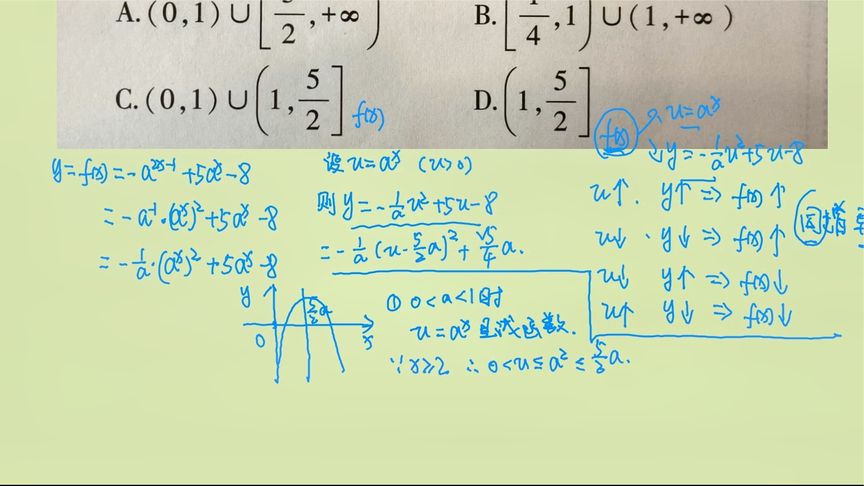 A. (0,1) ∪ [5/2, +∞)
B. [1/4, 1) ∪ (1, +∞)
C. (0,1) ∪ (1, 5/2]
D. (1, 5/2]
f(x)
y=f(x)=-a^{2x-1}+5a^x-8
=-a^{-1}·(a^x)^2+5a^x-8
=-1/a·(a^x)^2+5a^x-8
设 u=a^x (u>0)
则 y=-1/a u^2+5u-8
=-1/a (u-5/2 a)^2+25/4 a.
y
5/2 a
0
x
① 0<a<1时
u=a^x 是减函数.
∵x≥2 ∴ 0<u≤a^2≤5/2 a.
f(x)
u=a^x
↓y=-1/a u^2+5u-8
u↑. y↑ ⇒ f(x)↑
u↓ · y↓ ⇒ f(x)↑
同增
u↓ y↑ ⇒ f(x)↓
u↑ y↓ ⇒ f(x)↓